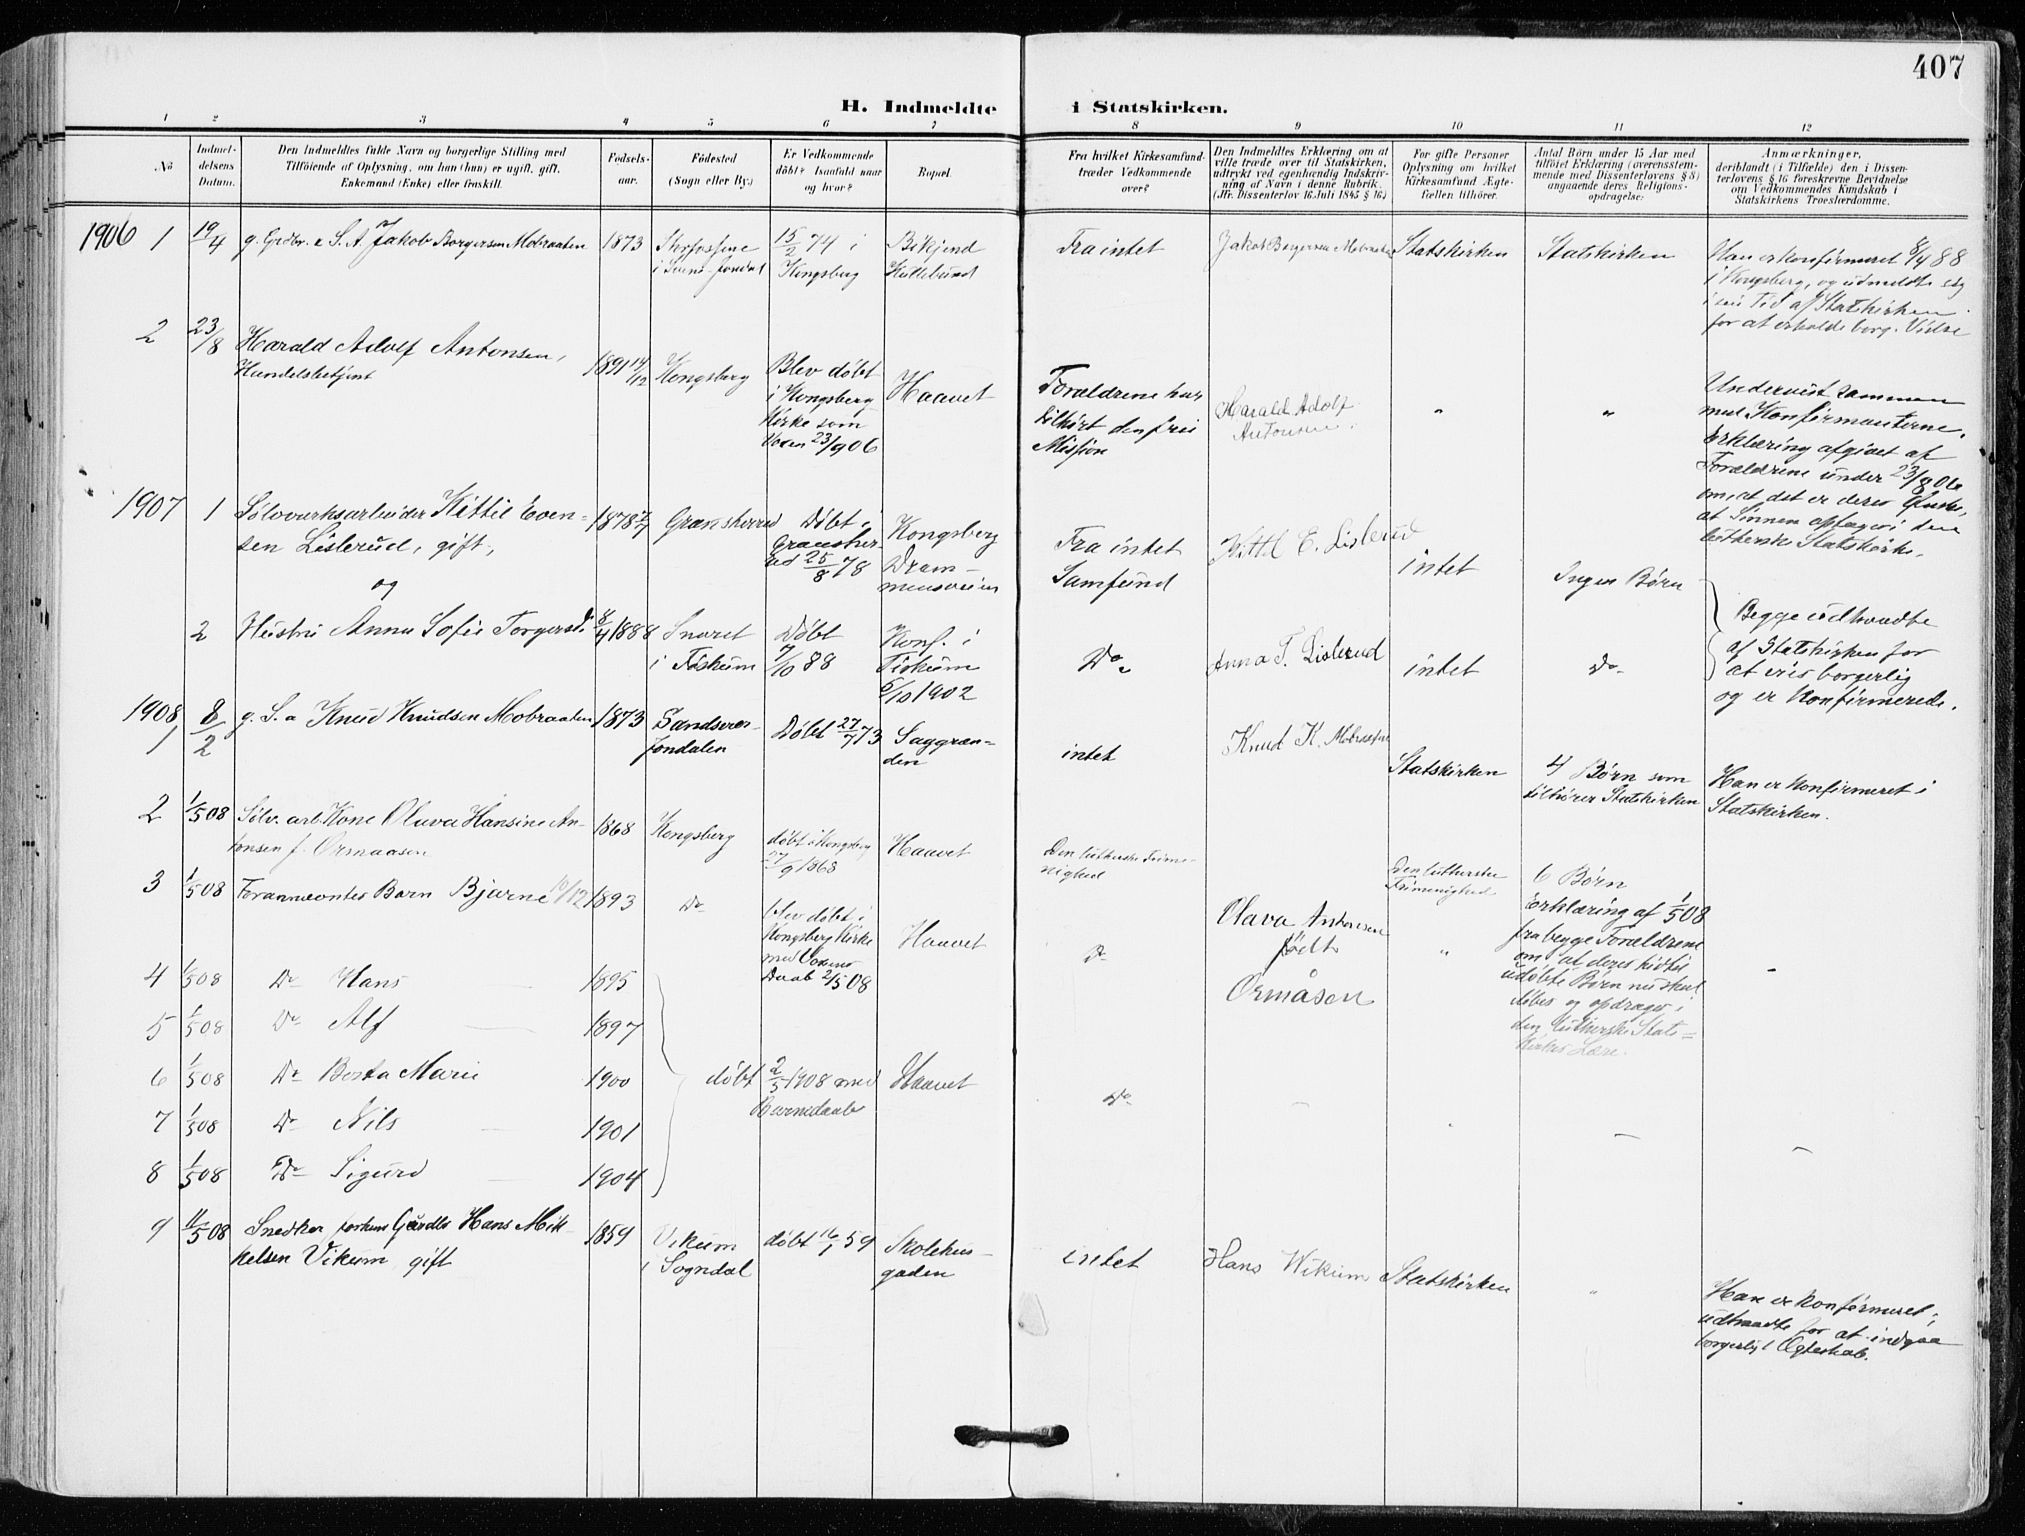 407
H. Indmeldte i Statskirken.
1 2 3 4 5 6 7 8 9 10 11 12
No
Indmeldelsens Datum.
Den Indmeldtes fulde Navn og borgerlige Stilling med
Tilföiende af Oplysning, om han (hun) er ugift, gift,
Enkemand (Enke) eller fraskilt.
Fødselsaar.
Födested
(Sogn eller By.)
Er Vedkommende
döbt? Isaafald naar
og hvor?
Bopæl.
Fra hvilket Kirkesamfund
træder Vedkommende
over?
Den Indmeldtes Erklæring om at
ville træde over til Statskirken,
udtrykt ved egenhændig Indskrivning
af Navn i denne Rubrik.
(Jfr. Dissenterlov 16 Juli 1845 § 16.)
For gifte Personer
Oplysning om hvilket
Kirkesamfund Ægtefællen
tilhörer.
Antal Börn under 15 Aar med
tilföiet Erklæring (overensstemmende
med Dissenterlovens § 8)
angaaende deres Religionsopdragelse:
Anmærkninger,
deriblandt (i Tilfælde) den i Dissenterlovens
§ 16 foreskrevne Bevidnelse
om Vedkommendes Kundskab i
Statskirkens Troeslærdomme.
1906 1 19/4 g. S. A. Jakob Borgersen Mobraaten 1873
15/2 74 i
Kongsberg
Fra intet
Jakob Borgersen Mobraaten
Statskirken
Statskirken
Han er konfirmeret 8/4 88
i Kongsberg, og udmeldte sig
i sin Tid af Statskirken
for at erholde borg. Vielse
2 23/8 Harald Adolf Antonsen,
Handelsbetjent
1891 14/12
Kongsberg
Blev døbt
i Kongsberg
Kirke som
Voxen 23/9 06
Haavet
Forældrene har
tilhört den frie
Mission
Harald Adolf
Antonsen.
"
"
Undervist sammen
med Konfirmanterne.
Erklæring afgivet af
Forældrene under 23/8 06
om, at det er deres Ønske,
at Sønnen optages i den
lutherske Statskirke.
1907 1 Sølvverksarbeider Kittil Evensen
Lislerud, gift,
og
1878
Gransherred
Døbt i
Gransherred
25/8 78
Kongsberg
Drammensveien
Fra intet
Samfund
Kittil E. Lislerud
intet
Ingen Børn
2 Hustru Anna Sofie Torgersd. 8/4 1888
Snaret
i Fiskum
Døbt
7/10 88
Konf. i
Fiskum
5/10 1902
Do
Anna T. Lislerud
intet
Do
Begge udtraadte
af Statskirken for
at vies borgerlig
og er konfirmerede.
1908
1 8/2 g. S. a Knud Knudsen Mobraaten 1873
Sandsvær
Jondalen
Døbt 27/7 73
Saggrænden
intet
Knud K. Mobraaten
Statskirken
4 Børn som
tilhører Statskirken
Han er konfirmeret i
Statskirken.
2 1/5 08 Sølv. arb. Kone Olava Hansine Antonsen
f. Ormaasen
1868
Kongsberg
døbt i Kongsberg
27/9 1868
Haavet
Den lutherske Frimenighed
Den lutherske
Frimenighed
6 Børn
Erklæring af 1/5 08
fra begge Forældrene
om, at deres hidtil
udøbte Børn nu skal
døbes og opdrages i
den lutherske Statskirkes
Lære.
3 1/5 08 Forannævntes Barn Bjarne 10/12 1893
Do
blev døbt i
Kongsberg Kirke
med Voxen
Daab 2/5 08
Haavet
Do
Olava Antonsen
født
Ormåsen
"
4 1/5 08 Do Hans 1895
5 1/5 08 Do Alf 1897
6 1/5 08 Do Berta Marie 1900
døbt 2/5 1908 med
Barnedaab
Haavet
Do
7 1/5 08 Do Nils 1901
8 1/5 08 Do Sigurd 1904
9 11/5 08 Snedker Hans Mikkelsen
Vikum gift
1859
Vikum
i Sogndal
døbt 16/1 59
Skolehusgaden
intet
Hans Wikum
Statskirken
"
Han er konfirmeret,
udtraadte for at indgaa
borgerligt Ægteskab.